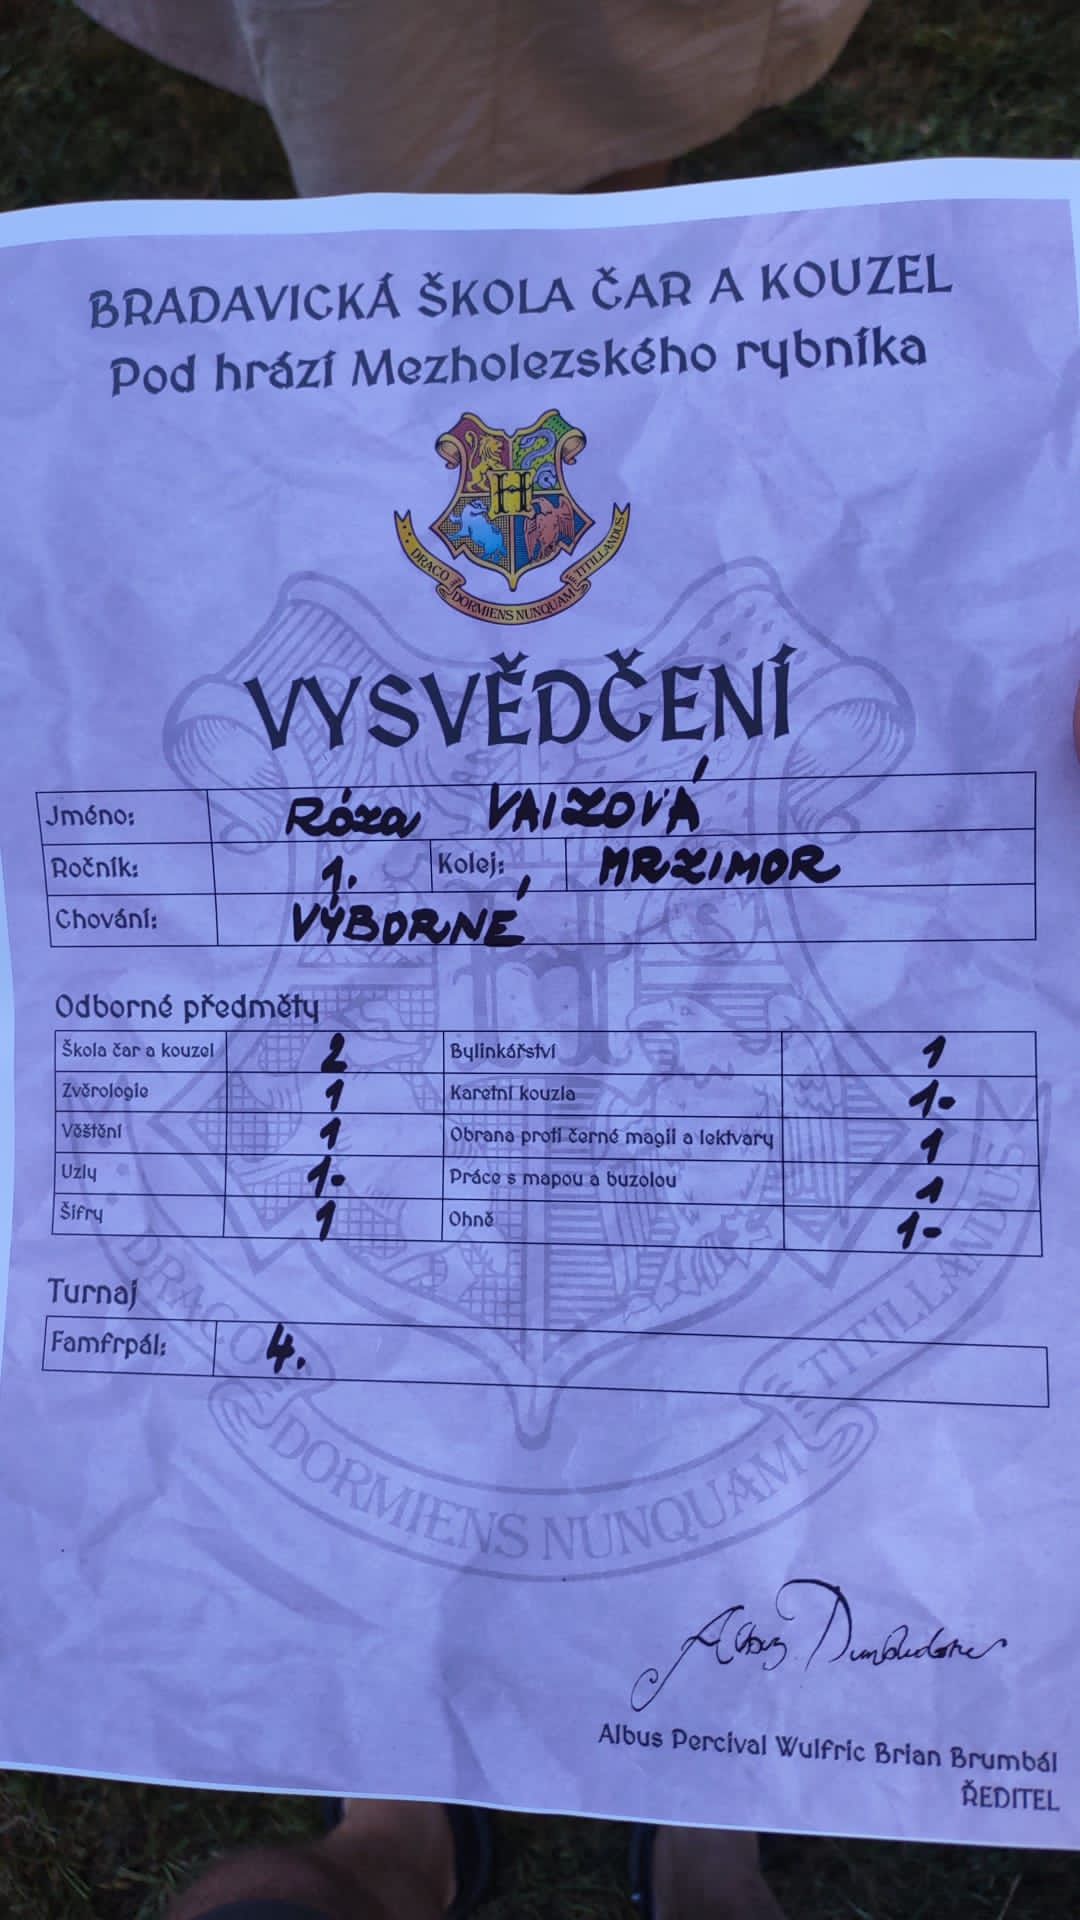 BRADAVICKÁ ŠKOLA ČAR A KOUZEL
Pod hrází Mezholezského rybníka
H
DRACO DORMIENS NUNQUAM TITILLANDUS
VYSVĚDČENÍ
Jméno: Róza VAIZOVÁ
Ročník: 1. Kolej: MRZIMOR
Chování: VÝBORNÉ
Odborné předměty
Škola čar a kouzel 2 Bylinkářství 1
Zvěrologie 1 Karetní kouzla 1-
Věštění 1 Obrana proti černé magii a lektvary 1
Uzly 1- Práce s mapou a buzolou 1
Šifry 1 Ohně 1-
Turnaj
Famfrpál: 4.
DRACO DORMIENS NUNQUAM TITILLANDUS
Albus Dumbledore
Albus Percival Wulfric Brian Brumbál
ŘEDITEL